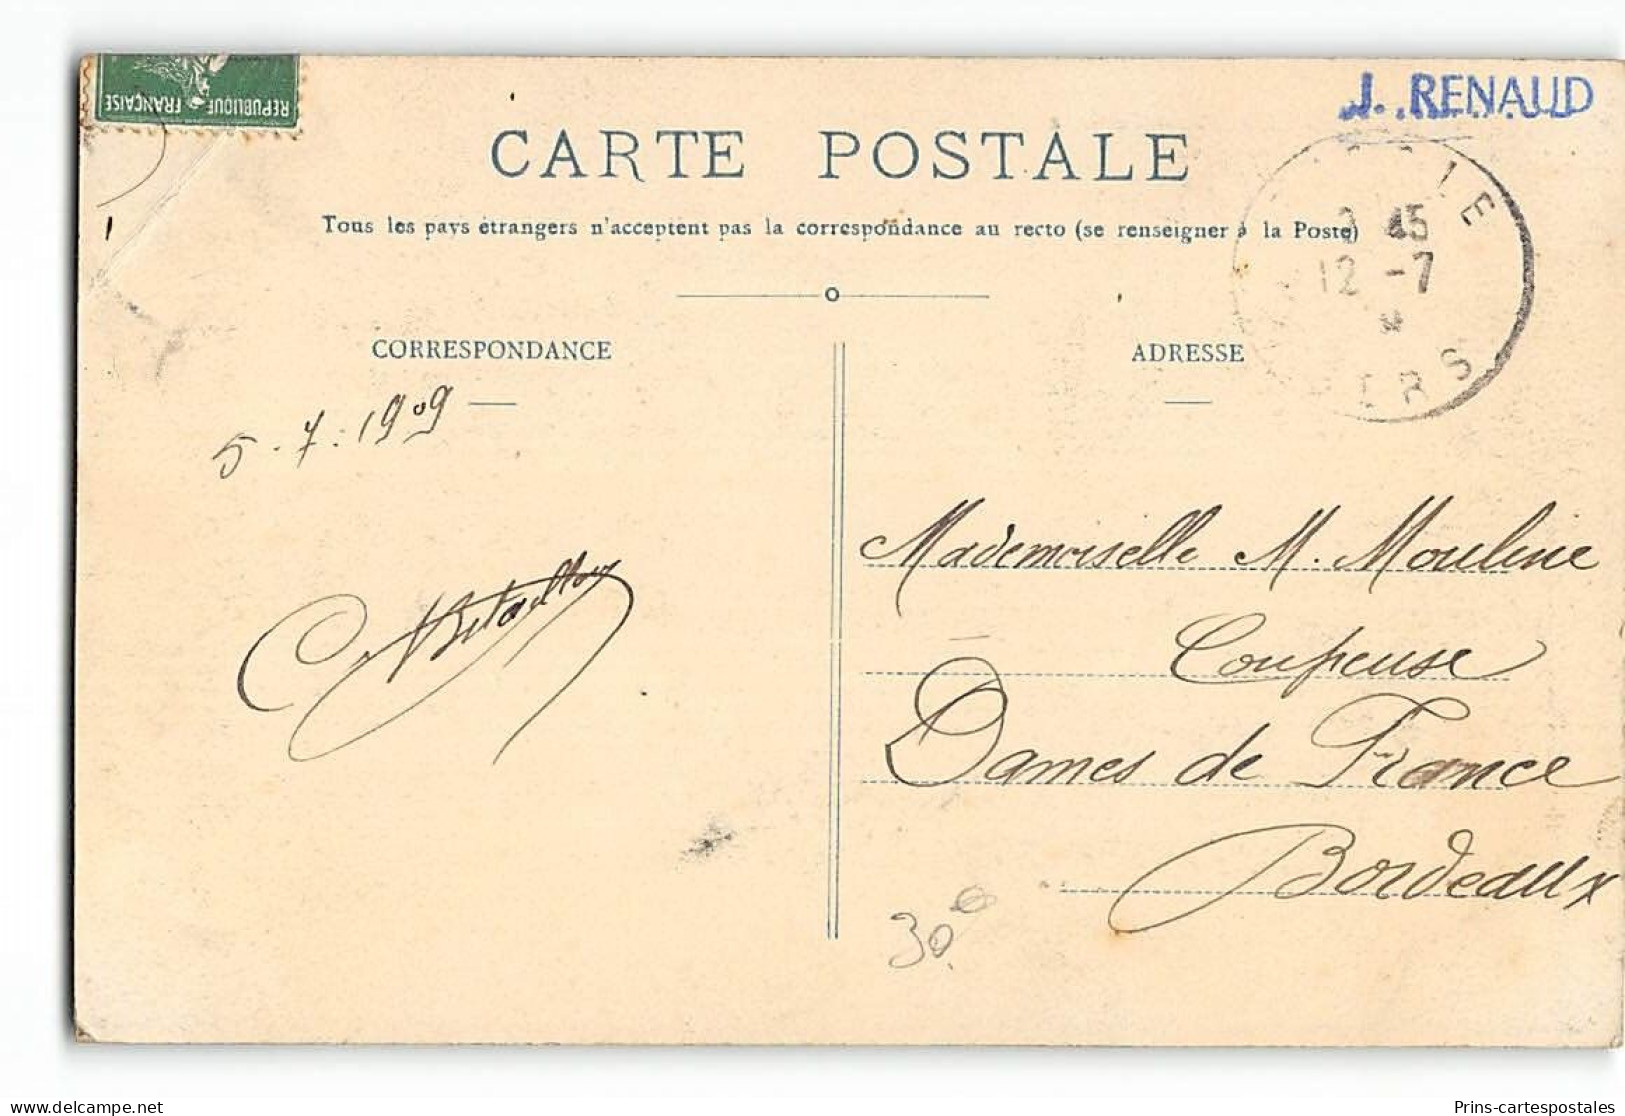 REPUBLIQUE FRANÇAISE
J. RENAUD
CARTE POSTALE
Tous les pays étrangers n'acceptent pas la correspondance au recto (se renseigner à la Poste)
45
12 -7
CORRESPONDANCE
ADRESSE
5-7:1909
Mademoiselle M. Mouline
Coupeuse
Dames de France
Bordeaux
30
delcampe.net
Prins-cartespostales